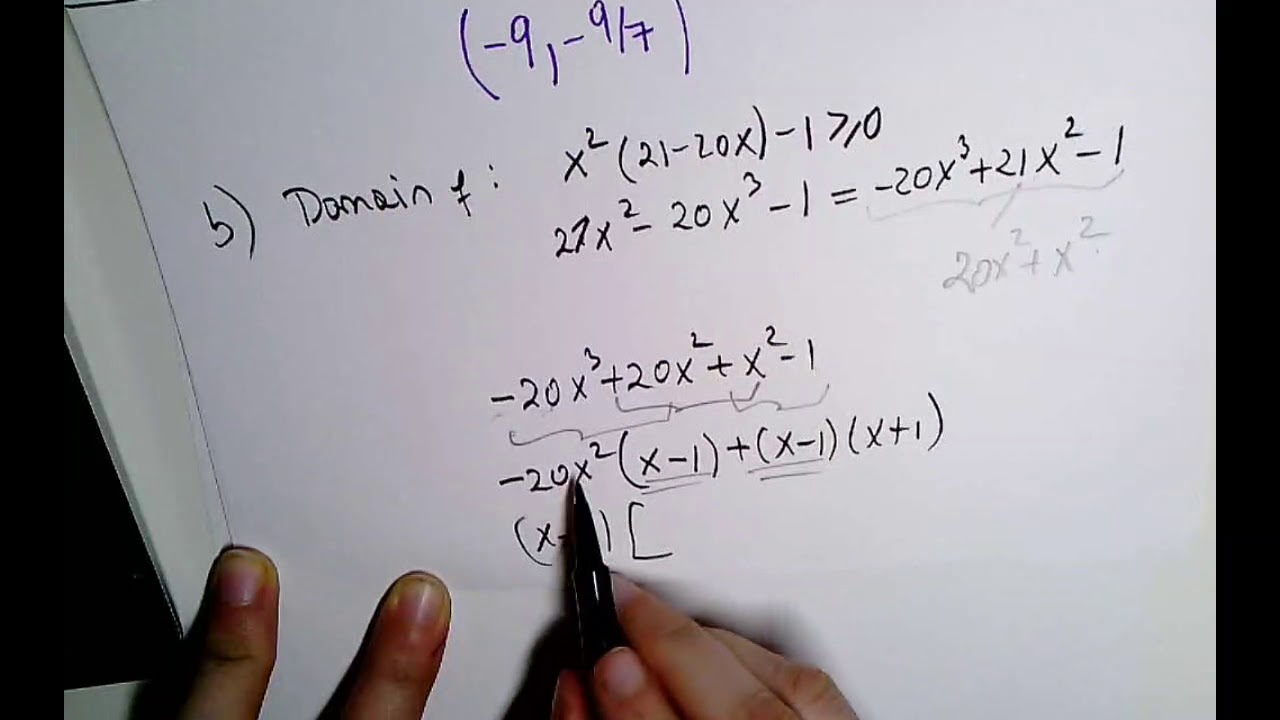 (-9, -9/7)
b) Domain f: x²(21-20x)-1≥0
21x²-20x³-1 = -20x³+21x²-1
20x²+x²
-20x³+20x²+x²-1
-20x²(x-1)+(x-1)(x+1)
(x- ) [